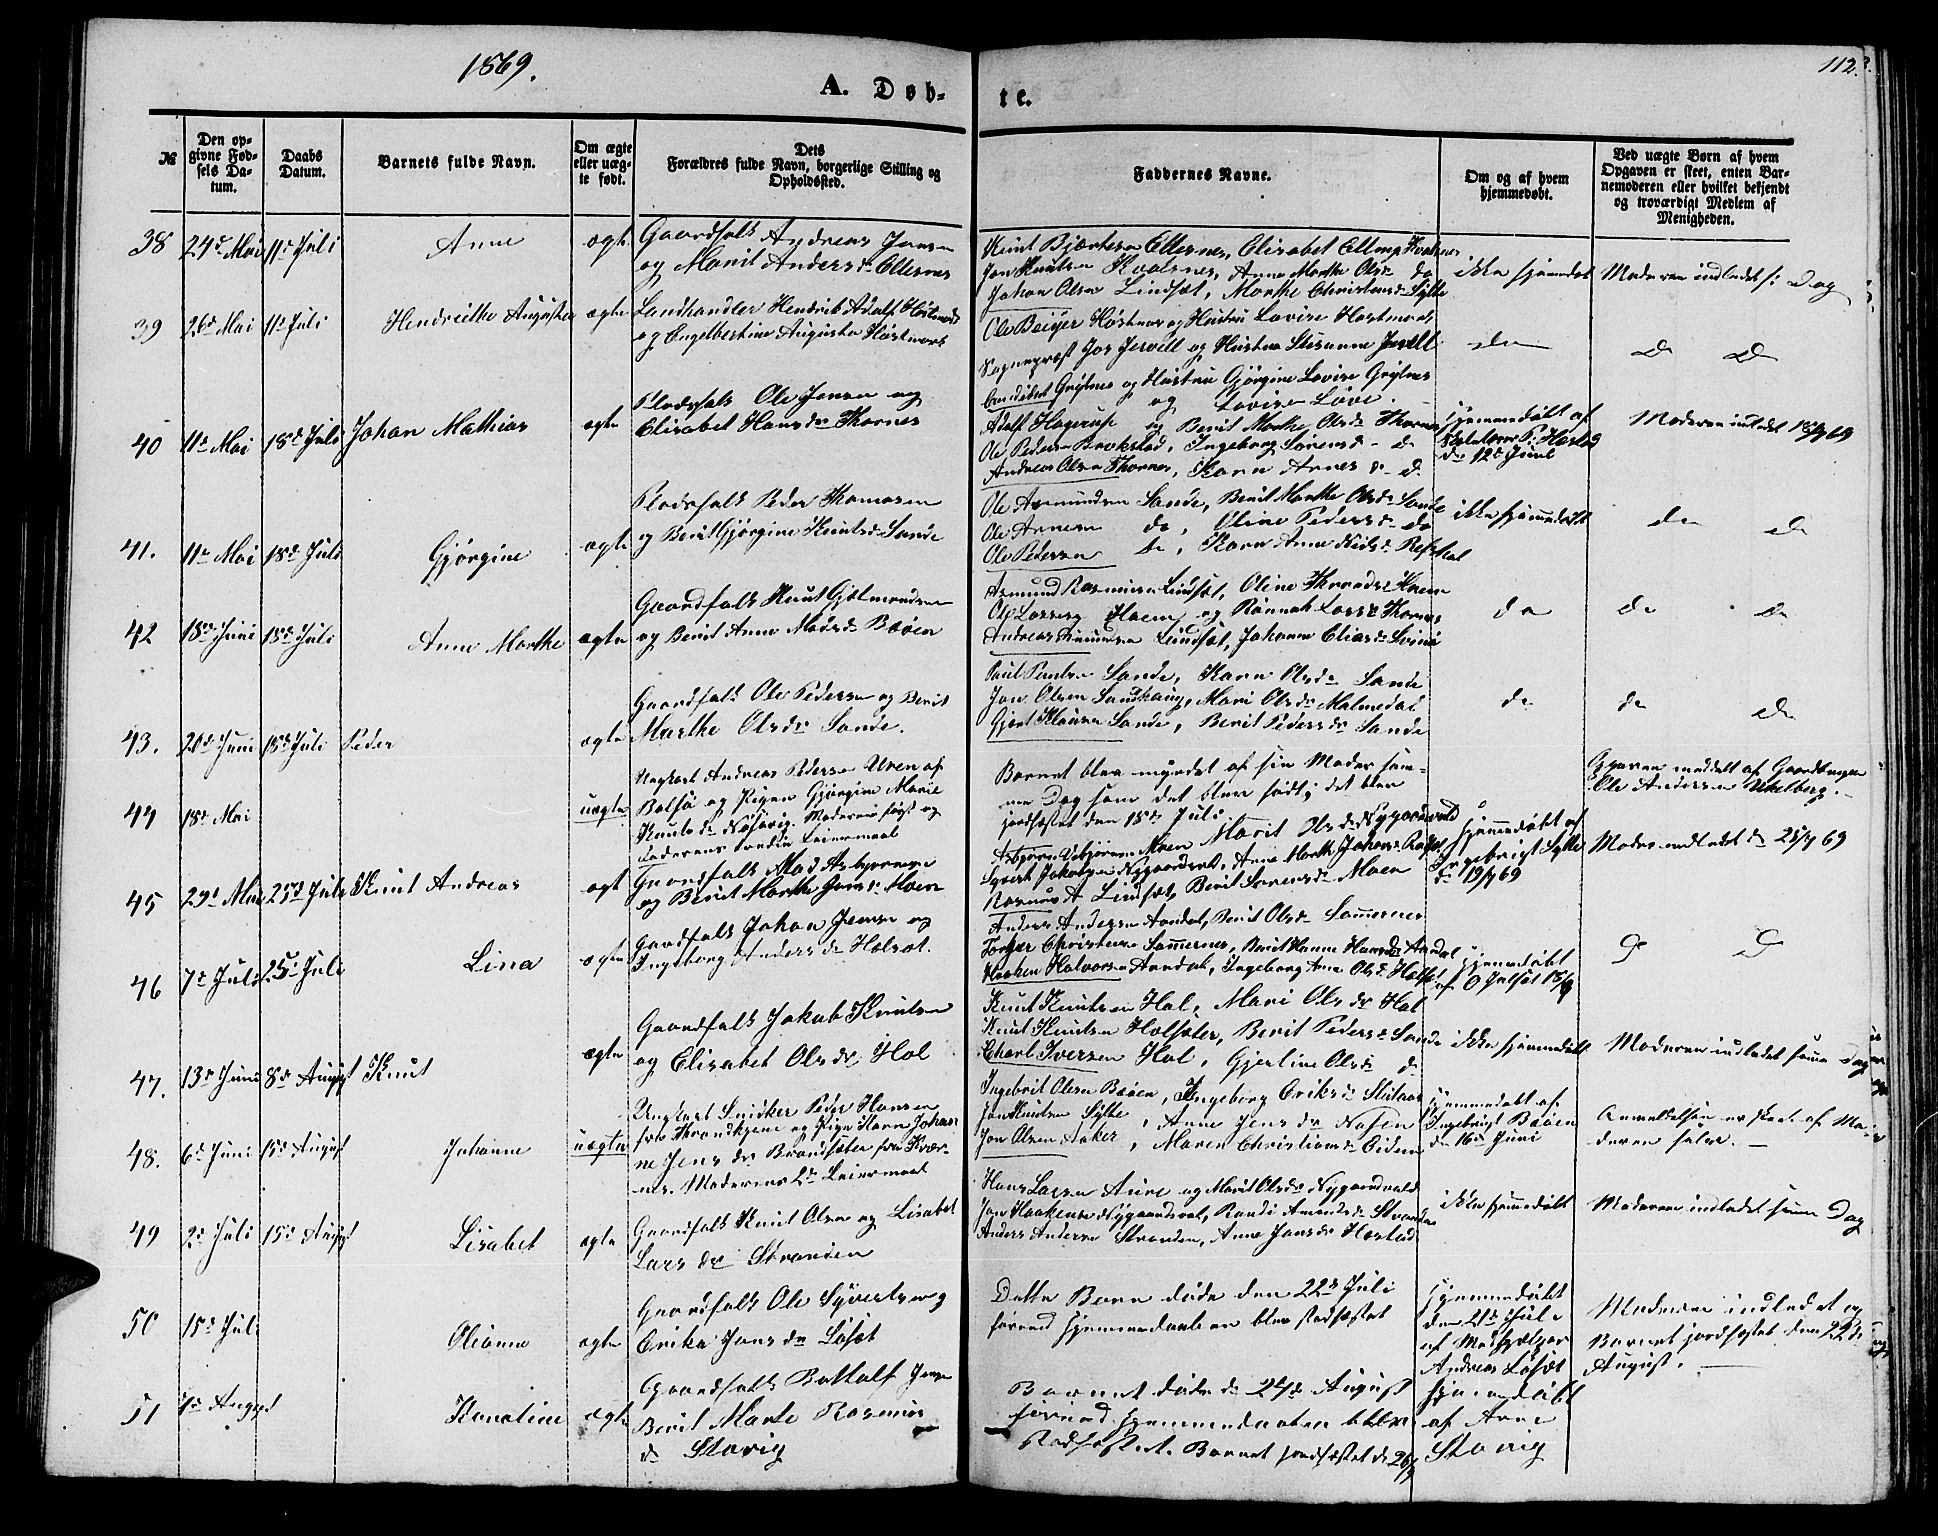 1869.
112.
A. Døb-
te.
№
Den op-
givne Fød-
sels Da-
tum.
Daabs
Datum.
Barnets fulde Navn.
Om ægte
eller uæg-
te født.
Dets
Forældres fulde Navn, borgerlige Stilling og
Opholdssted.
Faddernes Navne.
Om og af hvem
hjemmedøbt.
Ved uægte Børn af hvem
Opgaven er skeet, enten Bar-
nemoderen eller hvilket bekjendt
og troværdigt Medlem af
Menigheden.
38 24de Mai 11te Juli Anne ægte
Gaardfolk Andreas Jensen
og Marit Andersdr Ellesnes
Knut Bjærtesen Ellesnes, Elisabet Kvalsnes
Jon Knutsen Kvalsnes, Anne Marthe Olsdr do
Johan Olsen Lindset, Marthe Christensdr Sylte
ikke hjemmdøbt
Moderen indledet s: Dag
39 26de Mai 11te Juli ægte
Landhandler Hendrik Adolf Høstmark
og Engelbertine Augusta Høstmark
Ole Høstmark og Hustru Lovise Høstmark
Sognepræst Jervell og Hustru Susanne Jervell
Grytnes og Hustru Gjørgine Lovise Grytnes
og Lovise Løve.
do
do do
40 11te Mai 18de Juli Johan Mathias ægte
Pladsfolk Ole Jensen og
Elisabet Hansdr Thornes
Adolf Hagerup og Berit Marthe Olsdr Thornes
Ole Pedersen Brokstad, Ingeborg Sørensdr d
Andreas Olsen Thornes, Karen Arnesdr d.
hjemmedøbt af
P. Hæstad
d. 12te Juni
Moderen indledet 18/7 69
41. 11te Mai 18de Juli Gjørgine ægte
Pladsfolk Peder Thomasen
og Berit Gjørgine Knutsdr Sande
Ole Asmundsen Sande, Berit Marthe Olsdr Sande
Ole Arnesen do, Oline Pedersdr do
Ole Pedersen do, Karen Anne
ikke hjemmedøbt
do do
42 18de Juni 18de Juli Anne Marthe ægte
Gaardfolk Knut
og Berit Anne Madsdr Bøen
Asmund Rasmusen Lindset, Oline
Ole Larsen Hoem og Rannah Larsdr Thornes
Andreas Lindset, Johanne Eliasdr
do
do do
43. 20de Juni 18de Juli Peder ægte
Gaardfolk Ole Pedersen og Berit
Marthe Olsdr Sande.
Paul Paulsen Sande, Karen Olsdr Sande
Jon Olsen Sandhaug, Mari Olsdr Malmedal
Gjert Klausen Sande, Berit Pedersdr Sande
do
do do
44 18de Mai uægte
Ungkarl Andreas Pedersen Uren af
Bolsø og Pigen Gjørgine Marie
Knutsdr. Moderens første og
Faderens tredie Leiermaal
Barnet blev myrdet af sin Moder sam-
me Dag som det blev født; det blev
jordfæstet den 18de Juli
Opgaven meddelt af Gaardbruger
Ole Andersen Ukelberg.
45 29de Mai 25de Juli Knut Andreas ægt
Gaardfolk Mads Asbjørnsen
og Berit Marthe Jonsdr Moen
Asbjørn Moen Marit Olsdr Nygaardsvald
Syvert Jakobsen Nygaardsvold, Anne Marthe Johansdr
Rasmus A Lindset, Berit Sørensdr Moen
hjemmedøbt af
Ingebrigt Sylte
d. 19/7 69
Moderen indledet d. 25/7 69
46 7de Juli 25de Juli Lina ægte
Gaardfolk Johan Jensen og
Ingeborg Andersdr Holset.
Anders Andersen Aandal, Berit Olsdr Sammernes
Torger Christensen Sammernes, Berit Hanne Hansdr Aandal
Haaken Halvorsen Aandal, Ingeborg Anne Olsdr
hjemmedøbt
af O
d d
47. 13de Juni 8de August Knut ægte
Gaardfolk Jakob Knutsen
og Elisabet Olsdr Hol
Knut Knutsen Hol, Mari Olsdr Hol
Knut Knutsen Holsæter, Berit Pedersdr Sande
Charl Iversen Hol, Gjertine Olsdr d
ikke hjemmedøbt
Moderen indledet samme Dag
48. 6te Juni 15de August Johanne uægte
Ungkarl Snidker Peder Hansen
fra Throndhjem og Pige Karen Johan-
ne Jensdr Brandsæter fra Kvær-
nes. Moderens 2de Leiermaal
Ingebrit Olsen Bøen, Ingeborg Eriksdr
Jon Knutsen Sylte, Anne Jensdr
Jon Olsen Aaker, Maren Christiansdr Eidem
hjemmedøbt af
Ingebrigt Bøen
d. 16de Juni
Anmeldelsen er skeet af Mo-
deren selv.
49 2de Juli 15de August Lisabet ægte
Gaardfolk Knut Olsen og Lisabet
Larsdr Stranden
Hans Larsen Aure og Marit Olsdr Nygaardsvald
Jon Haakensen Nygaardsvol, Randi Amundsdr Stranden
Anders Andersen Stranden, Anne Jonsdr Hæstad
ikke hjemmedøbt
Moderen indledet samme Dag
50 15de Juli Olianne ægte
Gaardfolk Ole Syvertsen og
Erika Jonsdr Løset
Dette Barn døde den 22de Juli
førend hjemmedaaben blev stadfæstet
hjemmedøbt
den 21de Juli
af Medhjælper
Andreas Løset
Moderen indledet og
Barnet jordfæstet den 22de
August.
51 7de August Karoline ægte
Gaardfolk Jensen
Berit Marte Rasmus
dr Stavig
Barnet døde d. 24de August
førend hjemmedaaben blev
stadfæstet. Barnet jordfæstet d. 26/9
hjemmedøbt
af Arne
Stavig